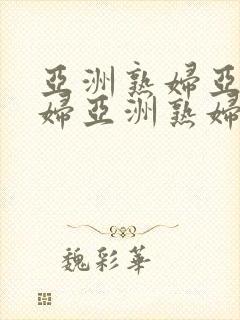 亞洲熟婦亞
婦亞洲熟婦
魏彩華